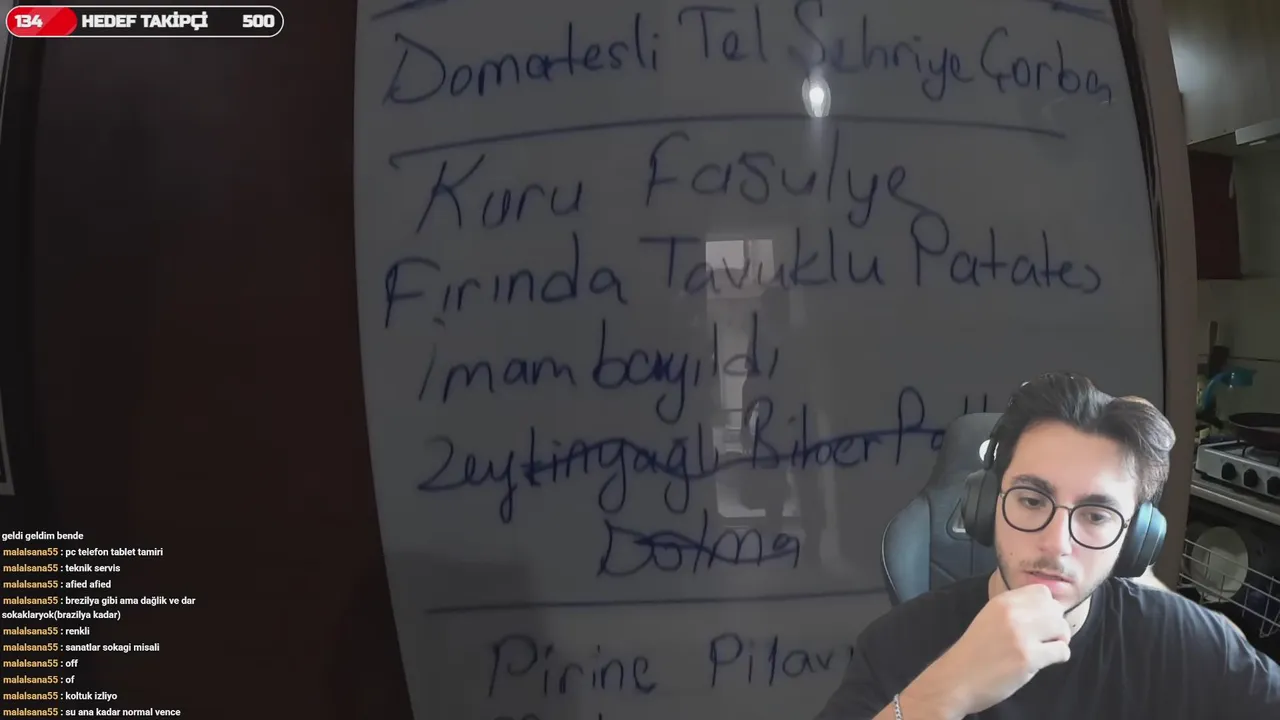 134 HEDEF TAKİPÇİ 500
Domatesli Tel Şehriye Çorba
Kuru Fasulye
Fırında Tavuklu Patates
İmam bayıldı
Zeytinyağlı Biber Pat
Dolma
Pirinç Pilavı
geldi geldim bende
malalsana55 : pc telefon tablet tamiri
malalsana55 : teknik servis
malalsana55 : afied afied
malalsana55 : brezilya gibi ama dağlik ve dar
sokaklaryok(brazilya kadar)
malalsana55 : renkli
malalsana55 : sanatlar sokagi misali
malalsana55 : off
malalsana55 : of
malalsana55 : koltuk izliyo
malalsana55 : su ana kadar normal vence